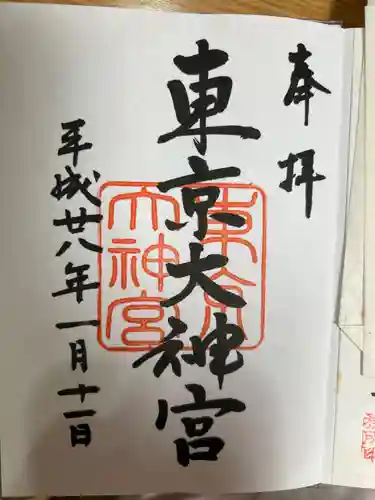 奉拝
東京大神宮
平成廿八年一月十一日
東京
大神宮